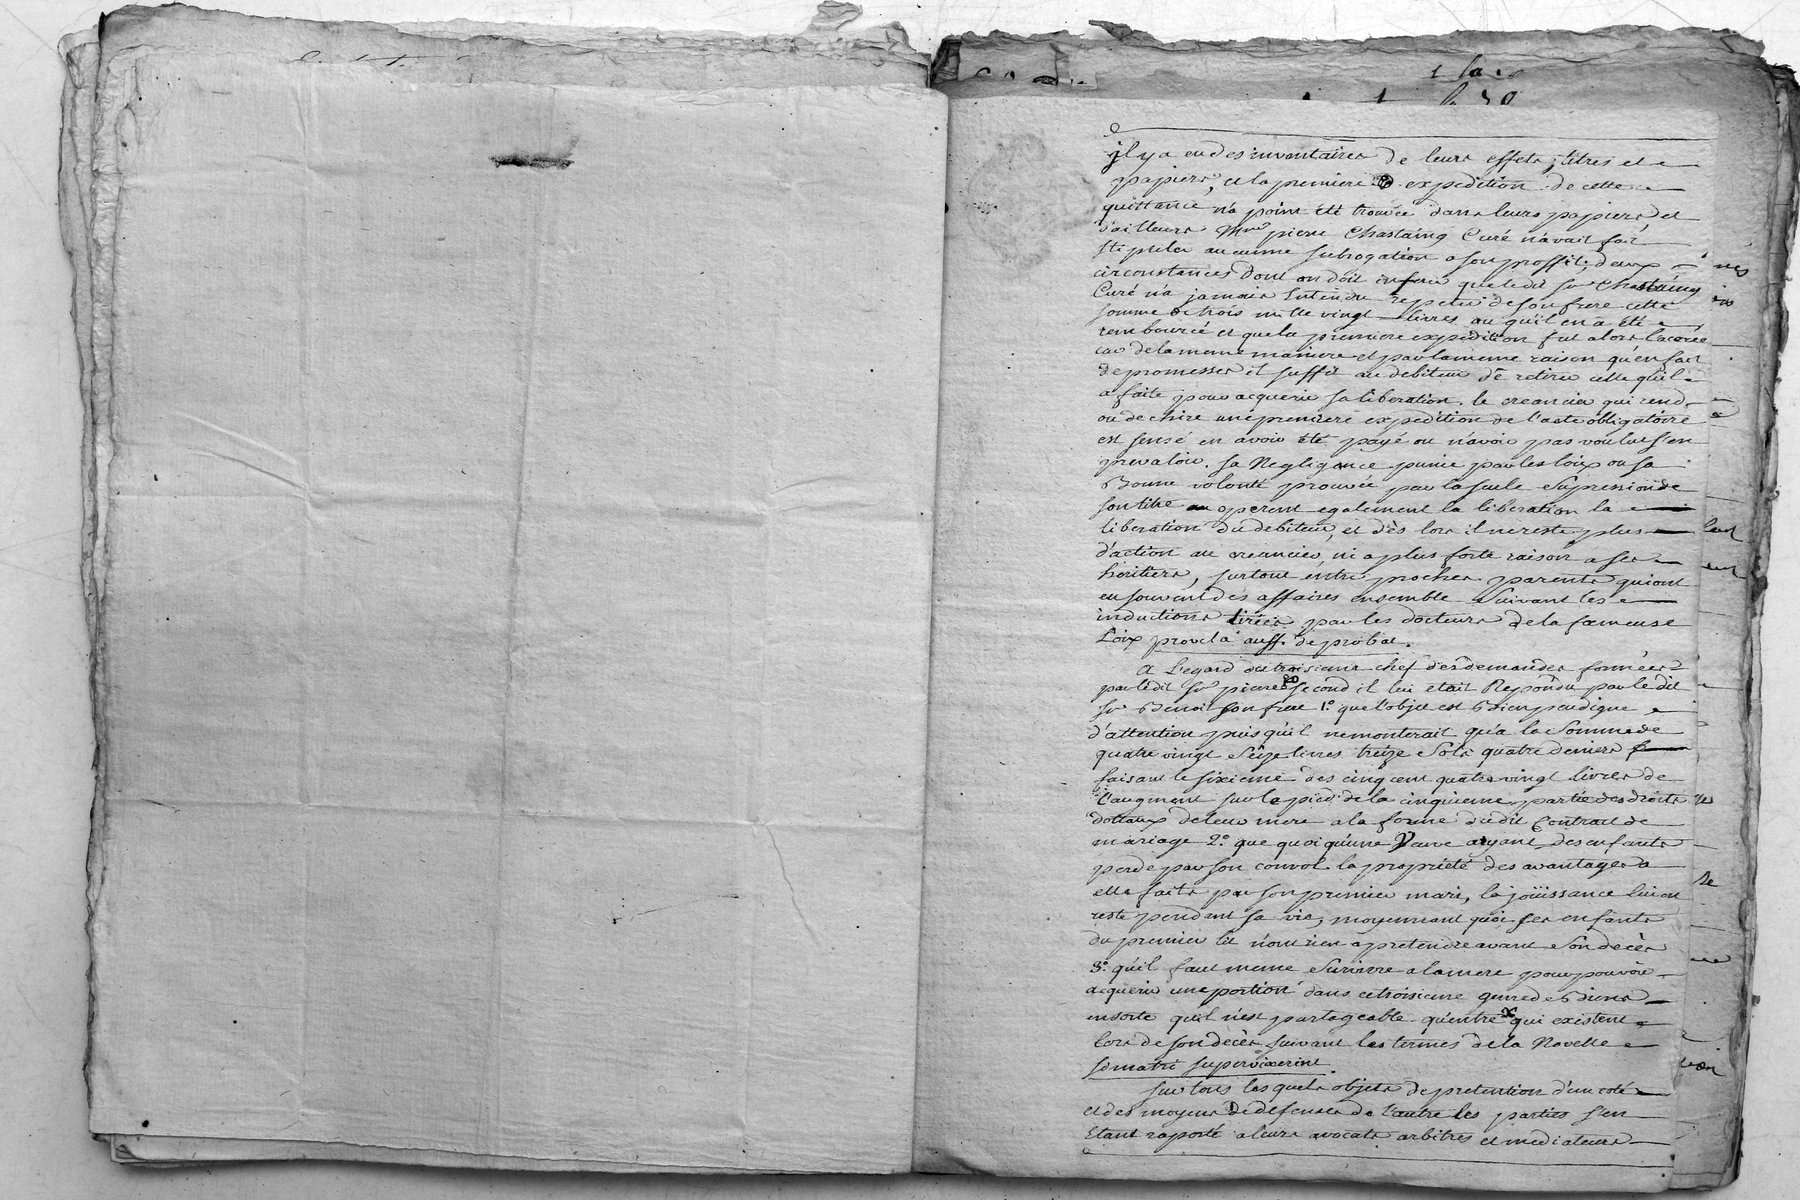 il y a eu des inventaires de leurs effets, titres et
papiers, et la premiere expedition de cette
quittance n'a point été trouvée dans leurs papiers et
d'ailleurs pierre Chastaing Curé n'avait fait
stipuler aucunne subrogation a son proffit; deux
circonstances dont on doit inferer que le dit sr Chastaing
Curé n'a jamais entendu repeter de son frere cette
somme de trois mille vingt livres ou qu'il en a été
remboursé et que la premiere expedition fut alors lacerée
car de la meme maniere et par la meme raison qu'en fait
de promesses il suffit au debiteur de retirer celle qu'il
a faite pour acquerir sa liberation. le creancier qui rend
ou dechire une premiere expedition de l'acte obligatoire
est sensé en avoir été payé ou n'avoir pas voulu s'en
prevaloir. sa Negligence punie par les loix ou sa
Bonne volonté prouvée par la seule supression de
son titre operent egalement la liberation la
liberation du debiteur, et dès lors il ne reste plus
d'action au creancier ni a plus forte raison a ses
heritiers, surtout entre proches parents qui ont
eu souvent des affaires ensemble suivant les
inductions tirées par les docteurs de la fameuse
Loix procula auff. de probat.
A l'egard du troisieme chef des demandes formées
par le dit sr pierre second il lui etait Repondu par le dit
sr Benoit son frere 1° que l'objet est Bien peu digne
d'attention puis qu'il ne monterait qu'a la somme de
quatre vingt seize livres treize sols quatre deniers
faisant le sixieme des cinq cent quatre vingt livres de
l'augment sur le pied de la cinquieme partie des droits
dottaux de leur mere a la forme du dit Contract de
mariage 2° que quoi qu'une Veuve ayant des enfants
perde par son convol la propriété des avantages a
elle faits par son premier mari, la joüissance lui en
reste pendant sa vie, moyennant quoi ses enfants
du premier lit n'ont rien a pretendre avant son decès
3° qu'il faut meme survivre a la mere pour pouvoir
acquerir une portion dans ce troisieme genre de Biens
en sorte qu'il n'est partageable qu'entre qui existent
lors de son decès suivant les termes de la Novelle
si matri supervixerint.
sur tous les quels objets de pretention d'un coté
et des moyens de defenses de l'autre les parties s'en
Etant raporté a leurs avocats arbitres et mediateurs